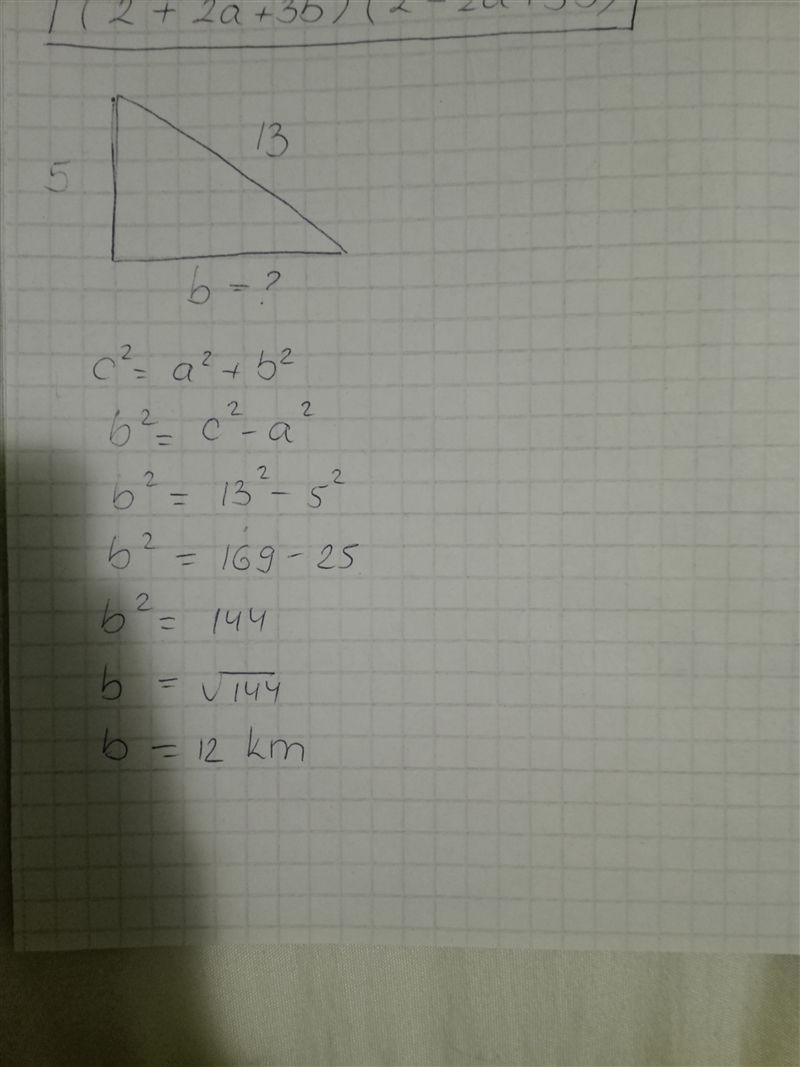 (2 + 2a + 3b) (2
13
5
b = ?
c² = a² + b²
b² = c² - a²
b² = 13² - 5²
b² = 169 - 25
b² = 144
b = √144
b = 12 km